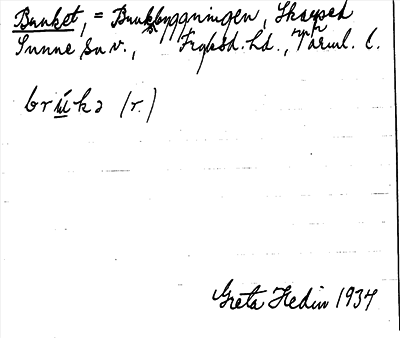 Bruket, = Brukbyggningen, Skarped
Sunne sn.v., Fryksd. hd., Värml. l.
brṳ́kə (r.)
Greta Hedin 1934